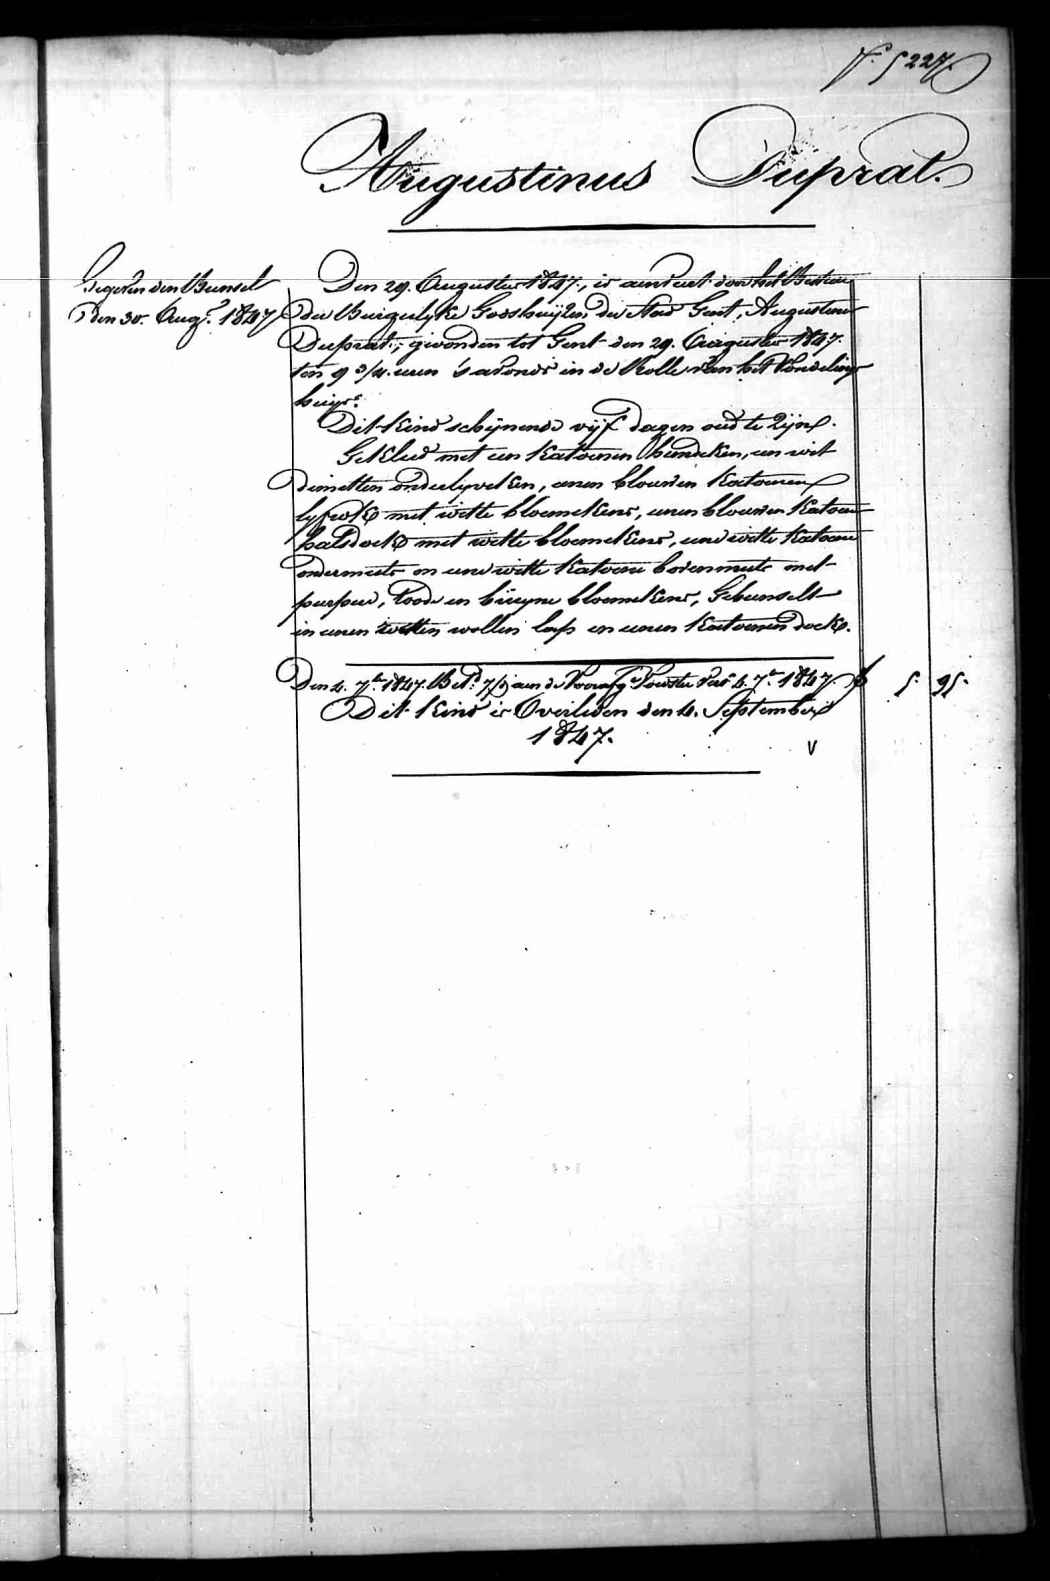 N.° 5227.
Augustinus Duprat.
Gegeven den Bunsel
Den 30. Aug.t 1847
Den 29. Augustus 1847, is aenveert door het Bestier
der Burgerlyke Godshuyzen der Stad Gent, Augustinus
Duprat, gevonden tot Gent den 29. Augustus 1847.
ten 9 3/4 uren 's avonds in de Rolle van het Vondeling
huys.
Dit Kind schynende vyf dagen oud te zyn.
Gekleed met een Katoenen hemdeken, een wit
dimetten onderlyveken, eenen blouwen Katoenen
lyfrok met witte bloemekens, eenen blouwen Katoene
halsdoek met witte bloemekens, eene witte Katoene
ondermuts en eene witte Katoene bovenmuts met
purper, roode en bruyne bloemekens, Gebunselt
in eenen witten wollen lap en eenen Katoenen doek.
Den 4. 7.r 1847. Bet.d aen de Voedster 4. 7.r 1847. 5. 95.
Dit Kind is Overleden den 4. September
1847.
V